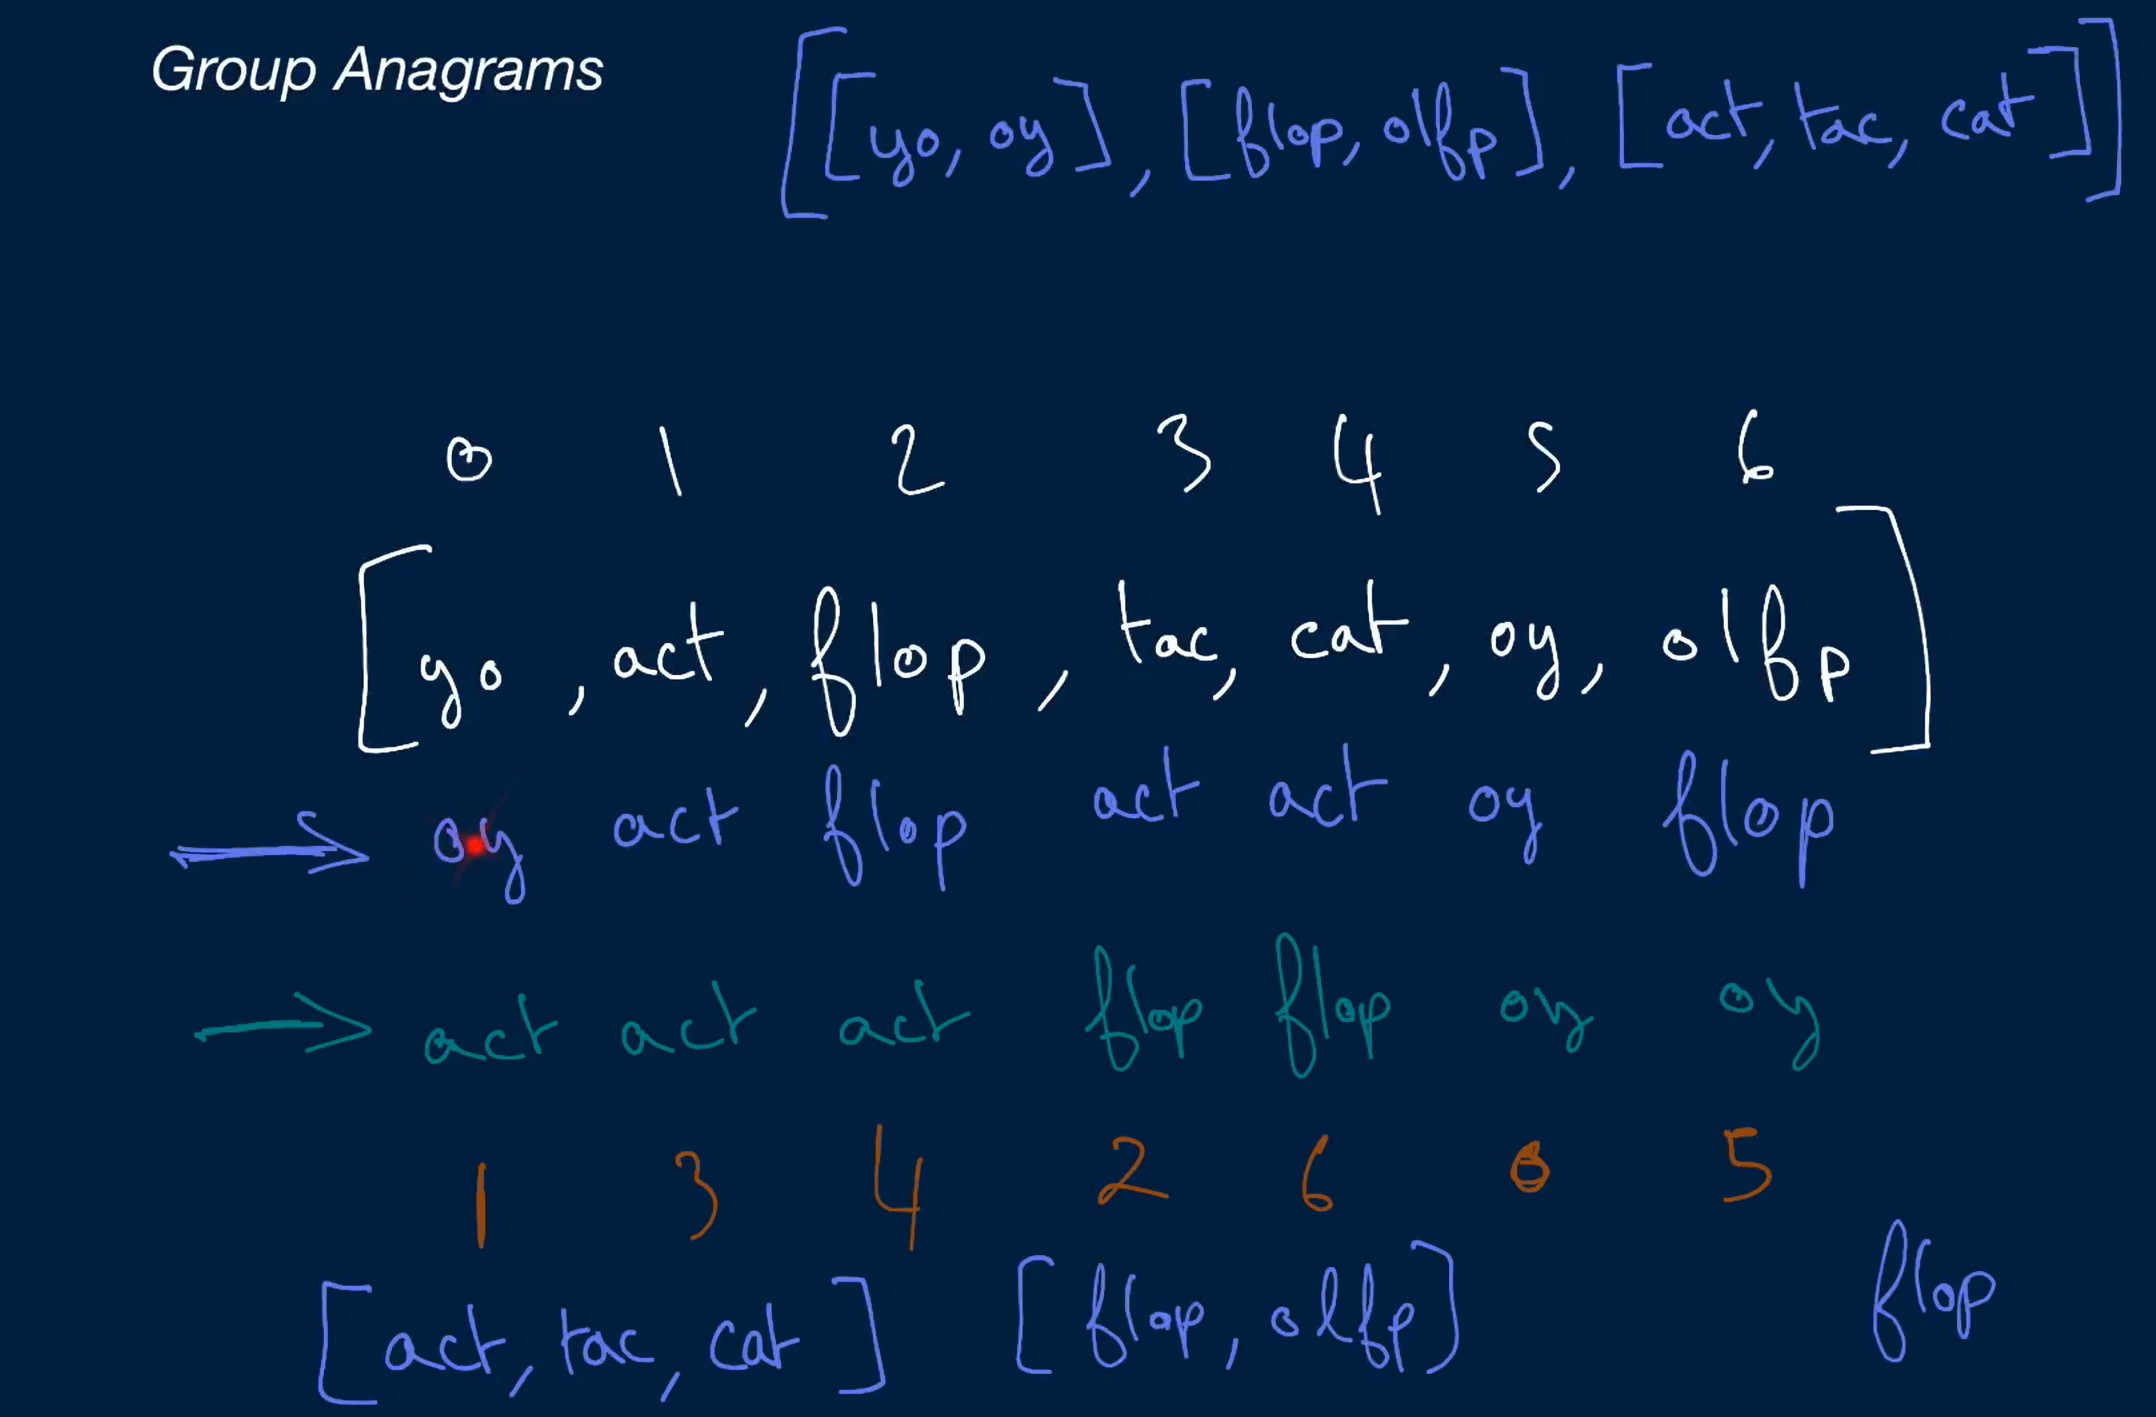 Group Anagrams
[[yo, oy], [flop, olfp], [act, tac, cat]]
0 1 2 3 4 5 6
[yo, act, flop, tac, cat, oy, olfp]
oy act flop act act oy flop
act act act flop flop oy oy
1 3 4 2 6 0 5
flop
[act, tac, cat] [flop, olfp]